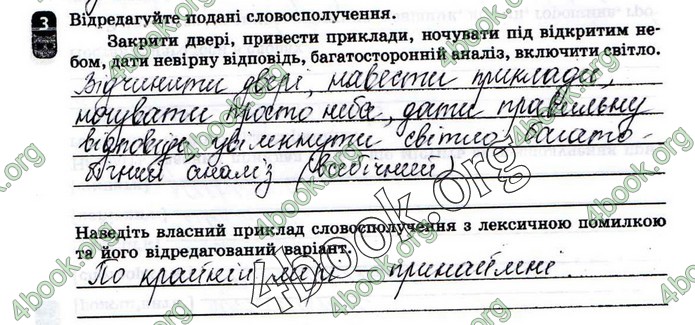 3 Відредагуйте подані словосполучення.
Закрити двері, привести приклади, ночувати під відкритим не-
бом, дати невірну відповідь, багатосторонній аналіз, включити світло.
Відчинити двері, навести приклади,
ночувати просто неба, дати правильну
відповідь, увімкнути світло, багато-
бічний аналіз (всебічний)
Наведіть власний приклад словосполучення з лексичною помилкою
та його відредагований варіант.
По крайній мірі — принаймні.
4book.org
4book.org
4book.org
4book.org
4book.org